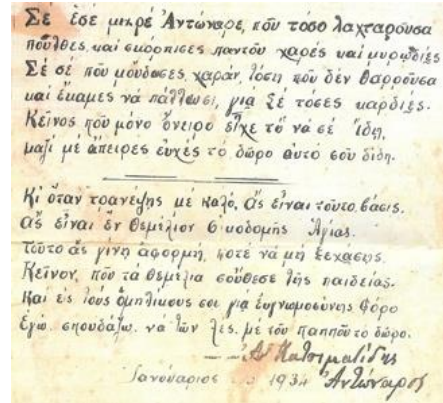 Σέ ἐσέ μικρέ Ἀντώναρε, πού τόσο λαχταροῦσα
ποὖλθες καί σκόρπισες παντοῦ χαρές καί μυρωδιές
Σέ σέ πού μοὔδωσες χαράν, τόση πού δέν θαρροῦσα
καί ἔκαμες νά πάλλωσι, γιά Σέ τόσες καρδιές.
Κεῖνος πού μόνο ὄνειρο εἶχε τό νά σέ ἴδῃ,
μαζί μέ ἄπειρες εὐχές τό δῶρο αὐτό σοῦ δίδῃ.
Κι ὅταν τρανέψῃς μέ καλό, ἄς εἶναι τοῦτο βάσις.
Ἄς εἶναι ἕν θεμέλιον οἰκοδομῆς Ἁγίας.
Τοῦτο ἄς γίνῃ ἀφορμή, ποτέ νά μή ξεχάσῃς
Κεῖνον, πού τά θεμέλια σοὔθεσε τῆς παιδείας.
Καί εἰς τούς ὁμηλίκους σου γιά εὐγνωμοσύνης φόρο
Ἐγώ σπουδάζω, νά τῶν λές, μέ τοῦ παπποῦ τό δῶρο.
Ἀντώναρος
Ἰανουάριος 1934